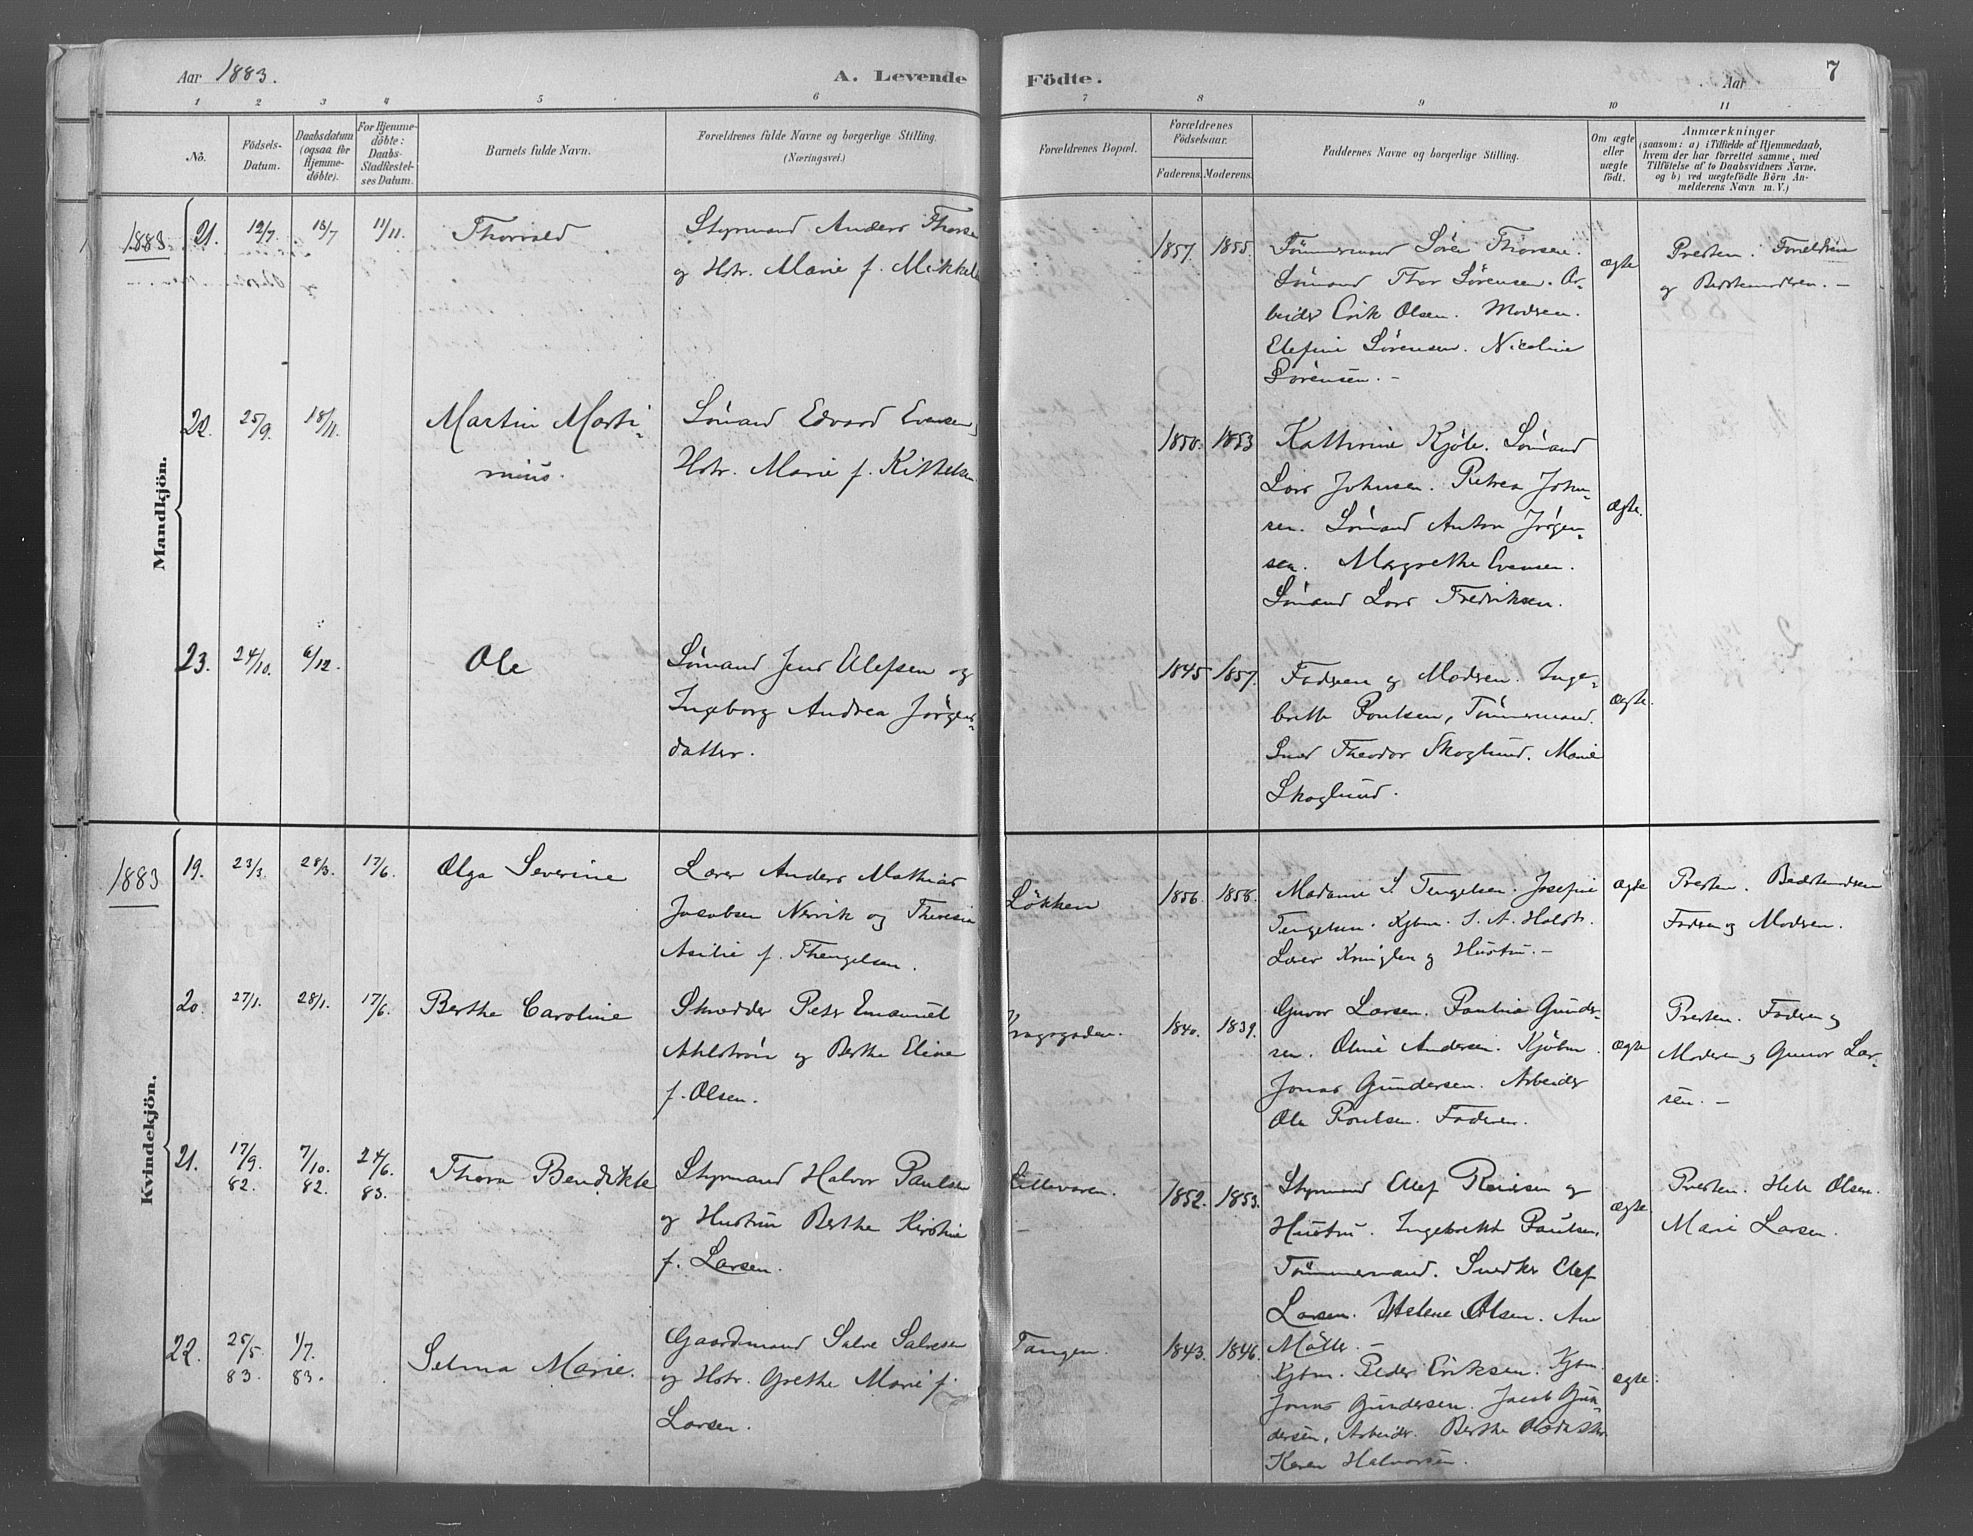 Aar 1883. A. Levende Födte. Aar 7
1 2 3 4 5 6 7 8 9 10 11
No.
Födsels-Datum.
Daabsdatum (ogsaa for Hjemme-döbte).
For Hjemme-döbte: Daabs-Stadfæstel-ses Datum.
Barnets fulde Navn.
Forældrenes fulde Navne og borgerlige Stilling. (Næringsvei.)
Forældrenes Bopæl.
Forældrenes Födselsaar.
Faderens. Moderens.
Faddernes Navne og borgerlige Stilling.
Om ægte eller uægte födt.
Anmærkninger
(saasom: a) i Tilfælde af Hjemmedaab,
hvem der har forrettet samme, med
Tilföielse af to Daabsvidners Navne,
og b) ved uægtefödte Börn An-
melderens Navn m. V.)
Mandkjön.
1883. 21. 12/7 13/7 11/11. Thorvald
Styrmand Anders Thorse
og Hstr. Marie f. Mikkels
1857. 1855.
Tømmermand Søren Thorsen.
Sømand Thor Sørensen. Ar-
beider Erik Olsen. Modren.
Elefine Sørensen. Nicoline
Sørensen. –
ægte
Presten. Forældrene
og Bedstemoderen. –
22. 25/9. 18/11. Martin Marti-
nius.
Sømand Edvard Evensen,
Hstr. Marie f. Kittelsen.
1850. 1853
Kathrine Kjøle. Sømand
Lars Johnsen. Petrea John-
sen. Sømand Anton Jørgen-
sen. Margrethe Evensen.
Sømand Lars Fredriksen.
ægte.
23. 24/10. 6/12. Ole
Sømand Jens Olefsen og
Ingeborg Andrea Jørgens-
datter.
1845 1857.
Fadren og Modren. Inge-
brette Poulsen, Tømmermand.
Sned Theodor Skoglund. Marie
Skoglund.
ægte.
Kvindekjön.
1883 19. 23/3. 28/3. 17/6. Olga Severine
Lærer Anders Mathias
Jacobsen Nervik og Theresie
Asilie f. Thengelsen.
Løkken 1856. 1858.
Madame S. Tengelsen. Josefine
Tengelsen. Kjbm. S. A. Holdt.
Lærer Kringlen og Hustru. –
ægte
Presten. Bedstemoderen
Fadren og Modren.
20. 27/1. 28/1. 17/6. Berthe Caroline
Skrædder Peter Emanuel
Ahlstrøm og Berthe Eline
f. Olsen.
Kragsgaden. 1840. 1839.
Gunor Larsen. Paulina Gunder-
sen. Oline Andersen. Kjøbm.
Jonas Gundersen. Arbeider
Ole Poulsen. Faderen.
ægte
Presten. Fadren og
Moderen og Gunor Lar-
sen. –
21. 17/9. 82. 7/10. 82. 24/6. 83. Thora Bendikte
Styrmand Halvor Paulsen
og Hustru Berthe Kirstine
f. Larsen.
1852. 1853.
Styrmand Ellef Reiersen og
Hustru. Ingebrekt Paulsen,
Tømmermand. Snedker Elef
Larsen. Helene Olsen. Ane
Møller. –
ægte
Presten. Hele Olsen.
Marie Larsen.
22. 25/5 83. 1/7. 83. Selma Marie.
Gaardmand Salve Salvesen
og Hstr. Grethe Marie f.
Larsen.
Tangen. 1843. 1846.
Kjbm. Peder Eriksen. Kjbm.
Jonas Gundersen. Jacob Gun-
dersen, Arbeider. Berthe Olsdatter
Karen Halvorsen.
ægte.